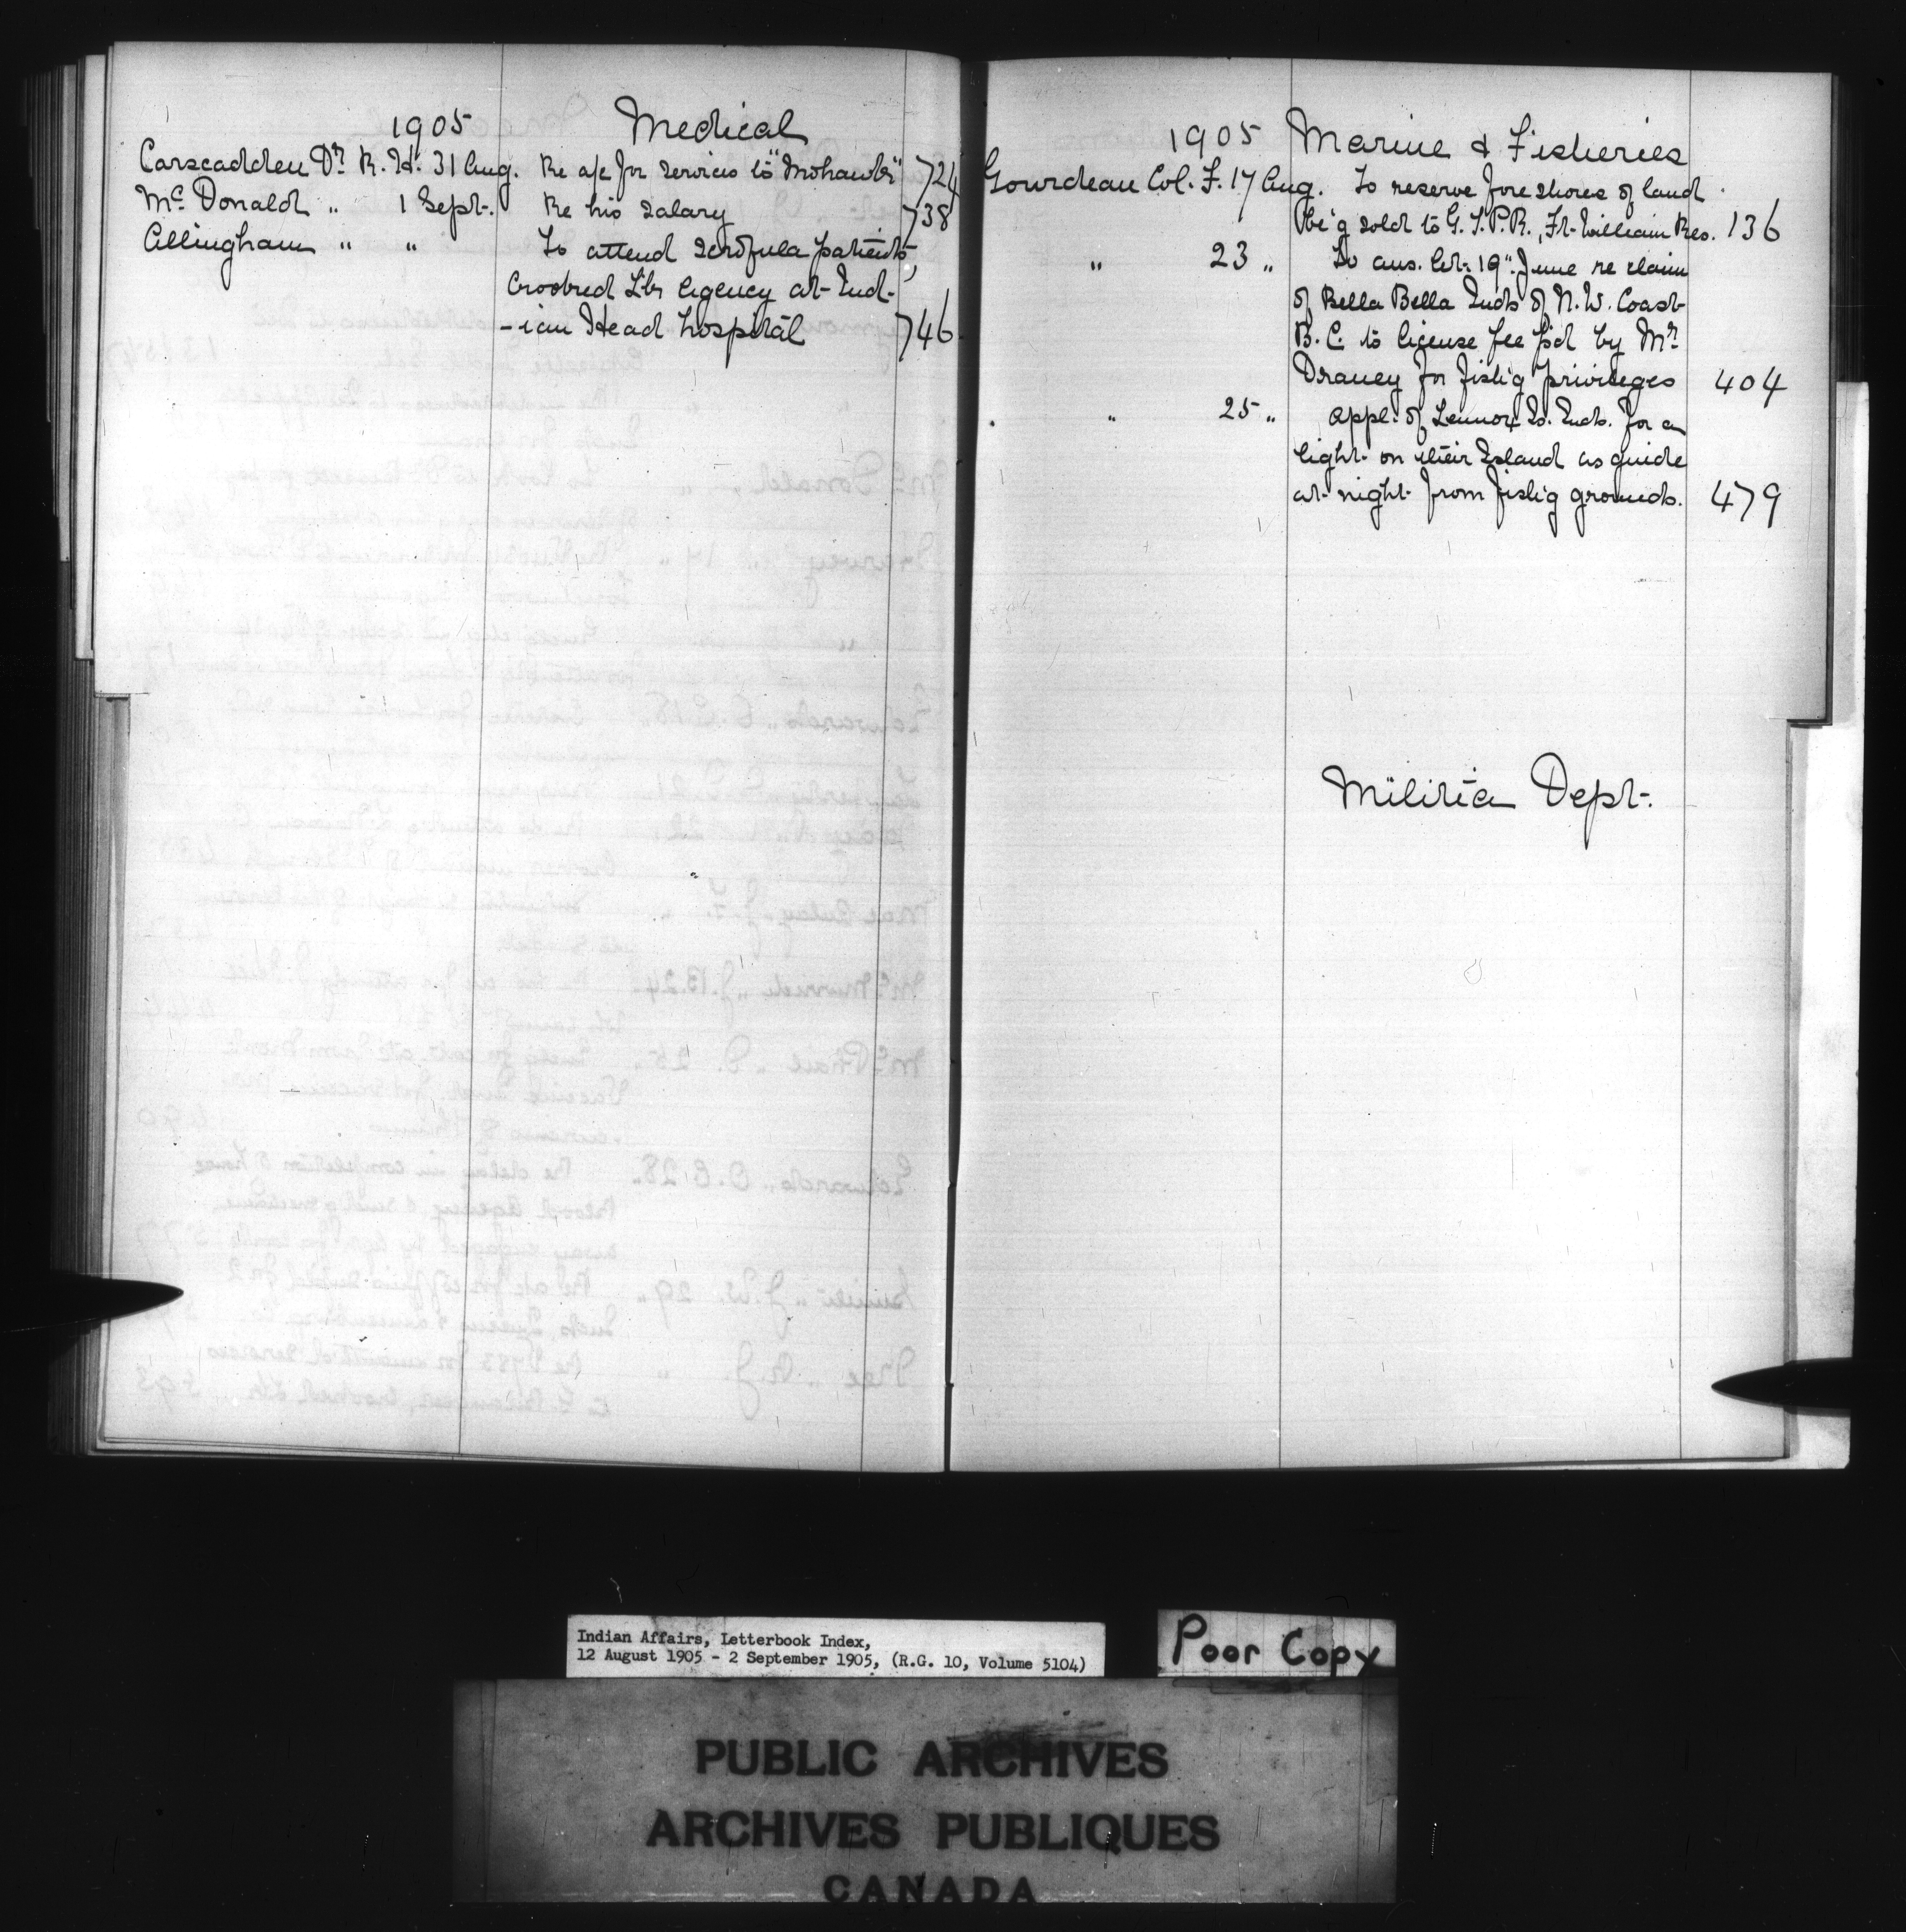 1905 Medical
Carscadden Dr. R. H. 31 Aug. Re a/c for services to "Mohawks" 724
Mc Donald " 1 Sept. Re his salary 738
Allingham " " To attend scrofula patients,
Crooked Lks Agency at Ind-
-ian Head hospital 746
1905 Marine & Fisheries
Gourdeau Col. F. 17 Aug. To reserve foreshores of land
be'g sold to G. T. P. R., Ft. William Res. 136
" 23 " To ans. let. 19" June re claim
of Bella Bella Inds of N. W. Coast
B. C. to license fee p'd by Mr.
Draney for fish'g privileges 404
" 25 " Appl. of Lennox Is. Inds. for a
light on their Island as guide
at night from fish'g grounds. 479
Militia Dept.
Indian Affairs, Letterbook Index,
12 August 1905 - 2 September 1905, (R.G. 10, Volume 5104)
Poor Copy
PUBLIC ARCHIVES
ARCHIVES PUBLIQUES
CANADA